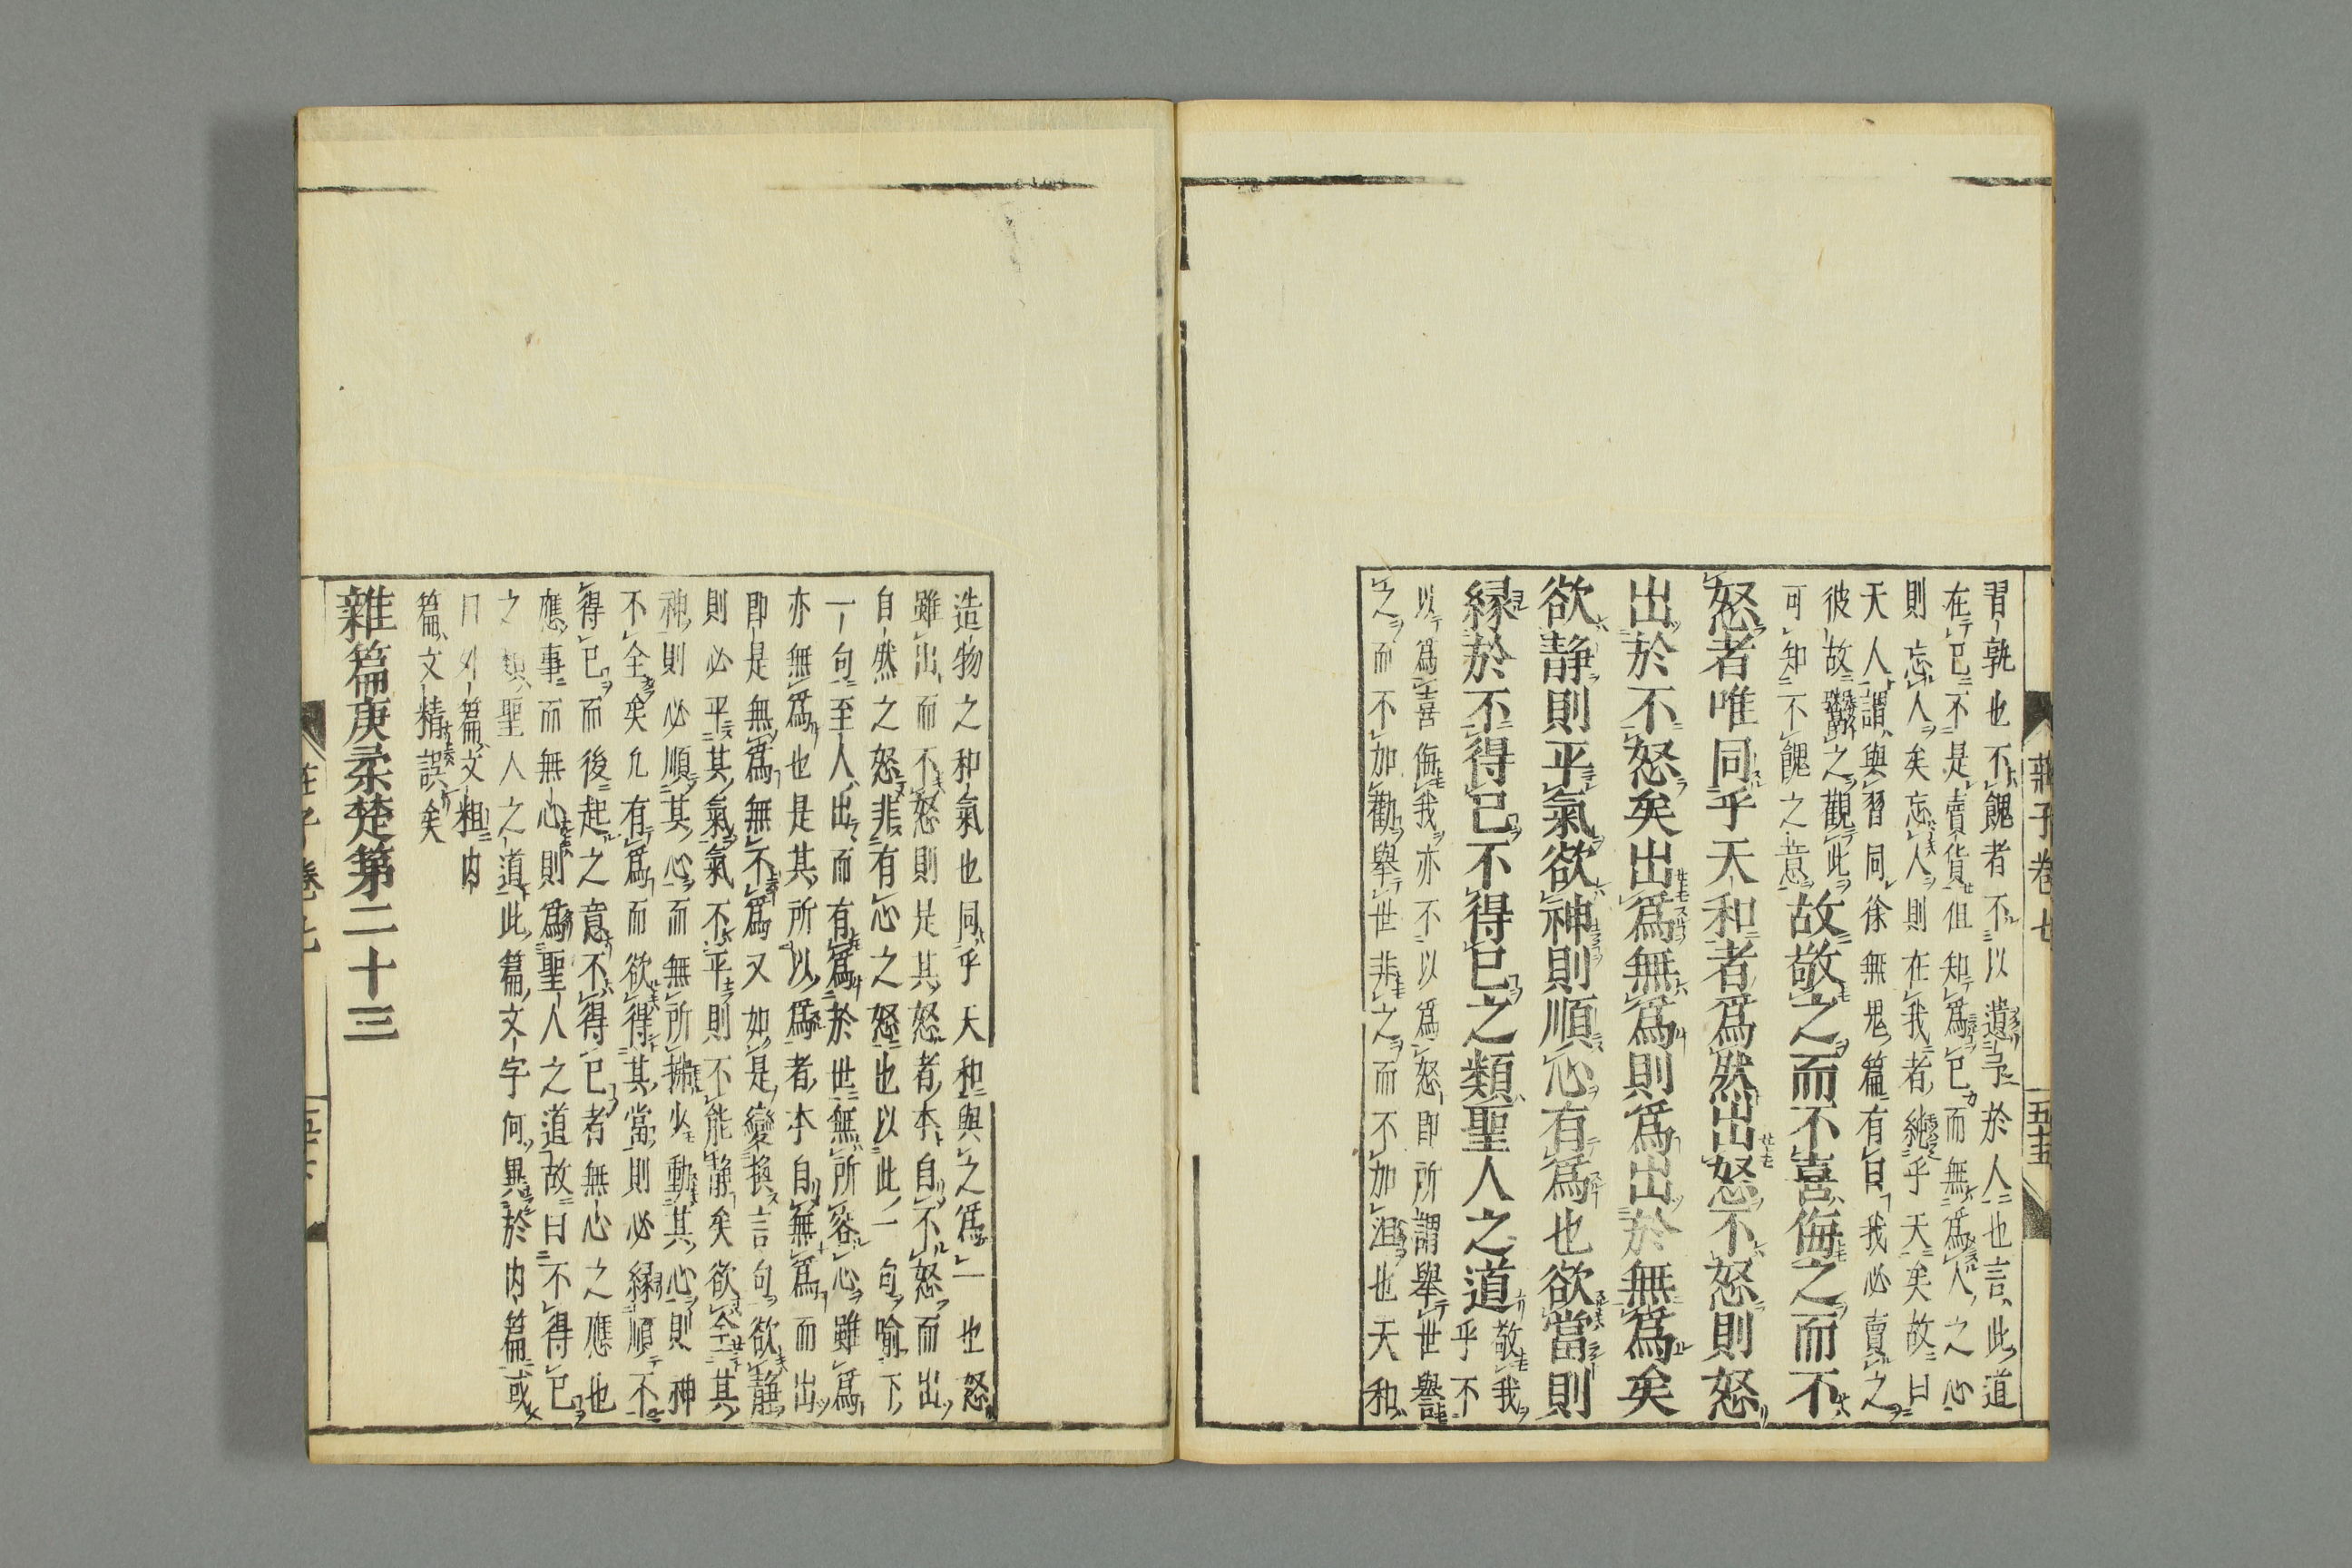 莊子卷七
五十五
習孰也不餽者不以遺予於人也言此道
在已不是賣貨但知爲已而無爲人之心
則忘人矣忘人則在我者純乎天矣故曰
天人謂與習同徐無鬼篇有曰我必賣之
彼故鬻之觀此
可知不餽之意故敬之而不喜侮之而不
怒者唯同乎天和者爲然出怒不怒則怒
出於不怒矣出爲無爲則爲出於無爲矣
欲静則平氣欲神則順心有爲也欲當則
縁於不得已不得已之類聖人之道敬我
乎不
以爲喜侮我亦不以爲怒即所謂舉世譽
之而不加勸舉世非之而不加沮也天和
造物之和氣也同乎天和與之爲一也怒
雖出而不怒則是其怒者本自不怒而出
自然之怒非有心之怒也以此一句喻下
一句至人出而有爲於世無所容心雖爲
亦無爲也是其所以爲者本自無爲而出
即是無爲無不爲又如是變換言句欲静
則必平其氣氣不平則不能静矣欲全其
神則必順其心而無所拂少動其心則神
不全矣凡有爲而欲得其當則必縁順不
得已而後起之意不得已者無心之應也
應事而無心則爲聖人之道故曰不得已
之類聖人之道此篇文字何異於内篇或
曰外篇文粗内
篇文精誤矣
雜篇庚桑楚第二十三
莊子卷七